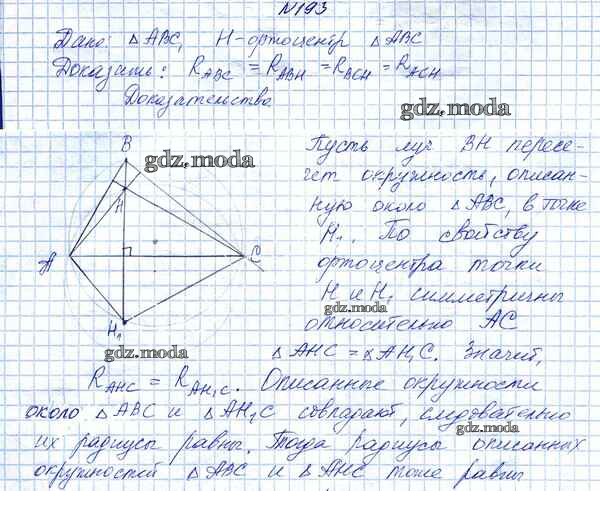 №193
Дано: △ABC, H-ортоцентр △ABC
Доказать: R_ABC = R_ABH = R_BCH = R_ACH
gdz.moda
Доказательство
B
gdz.moda
H
A
C
H₁
gdz.moda
Пусть луч BH пересе-
чет окружность, описан-
ную около △ABC, в точке
H₁. По свойству
ортоцентра точки
H и H₁ симметричны
gdz.moda
относительно AC
△AHC = △AH₁C. Значит,
R_AHC = R_AH₁C. Описанные окружности
около △ABC и △AH₁C совпадают, следовательно
gdz.moda
их радиусы равны. Тогда радиусы описанных
окружностей △ABC и △AHC тоже равны